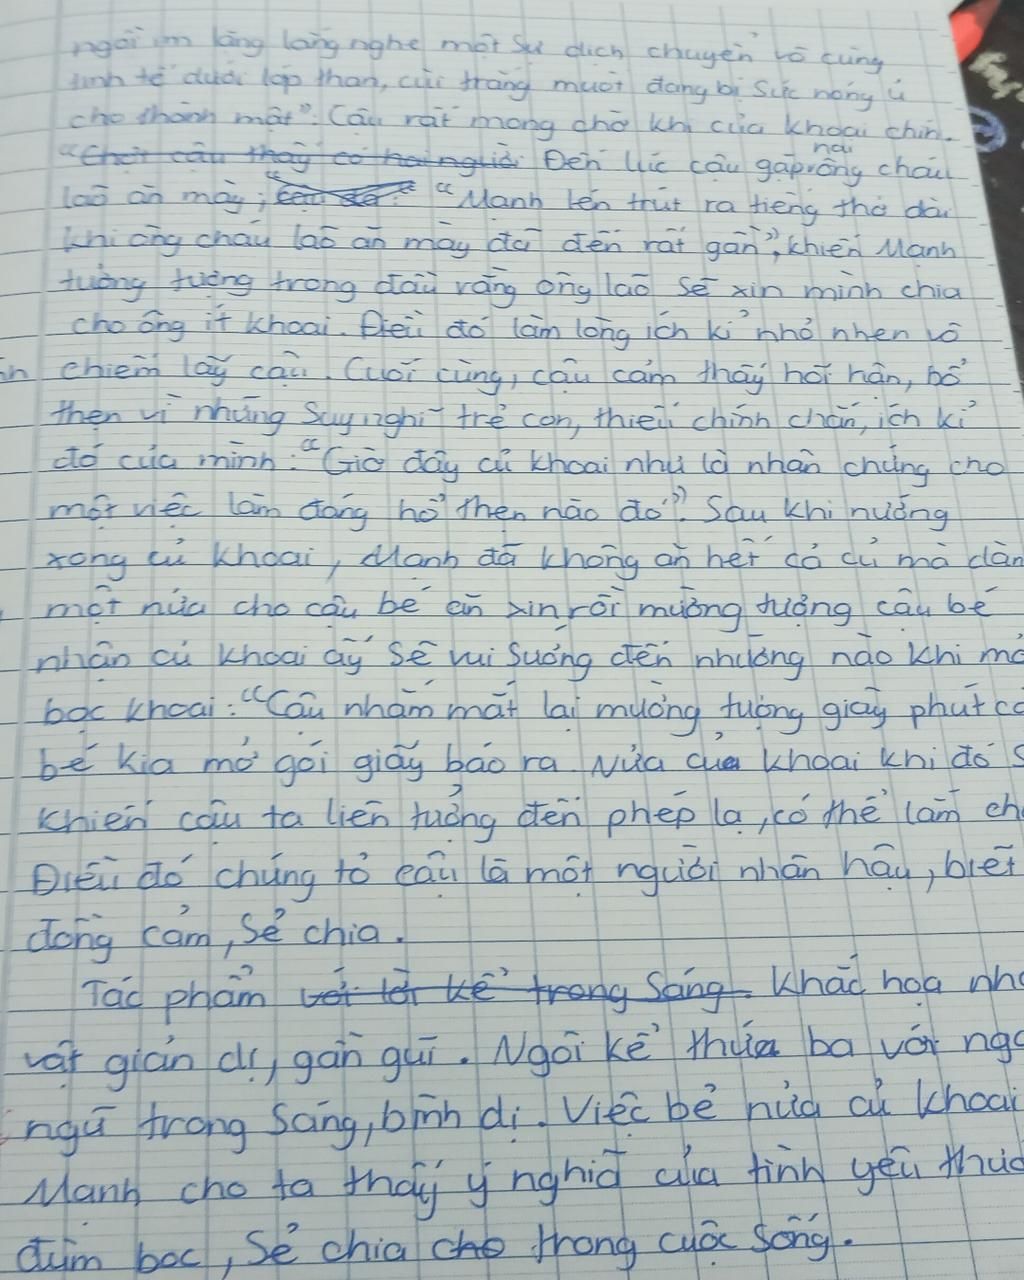 ngồi im lặng lắng nghe một sự dịch chuyển vô cùng
tinh tế dưới lớp than, cùi trắng muốt đang bị sức nóng ủ
cho thành mật". Cậu rất mong chờ khi của khoai chín.
"Chợt cậu thấy có hai người Đến lúc cậu gặp nội ông cháu
lão ăn mày; "Mạnh lén trút ra tiếng thở dài
khi ông cháu lão ăn mày đã đến rất gần", khiến Mạnh
tưởng tượng trong đầu rằng ông lão sẽ xin mình chia
cho ông ít khoai. Điều đó làm lòng ích kỉ nhỏ nhen vô
chiếm lấy cậu. Cuối cùng, cậu cảm thấy hối hận, hổ
thẹn vì những suy nghĩ trẻ con, thiếu chính chắn, ích kỉ
đó của mình: "Giờ đây củ khoai như là nhân chứng cho
một việc làm đáng hổ thẹn nào đó". Sau khi nướng
xong củ khoai, Mạnh đã không ăn hết cả củ mà dàn
một nửa cho cậu bé ăn xin rồi mường tượng cậu bé
nhận củ khoai ấy sẽ vui sướng đến nhường nào khi mở
bọc khoai: "Cậu nhắm mắt lại mường tượng giây phút cậ
bé kia mở gói giấy báo ra. Nửa củ khoai khi đó s
khiến cậu ta liên tưởng đến phép lạ, có thể làm ch
Điều đó chứng tỏ cậu là một người nhân hậu, biết
đồng cảm, sẻ chia.
Tác phẩm với lời kể trong sáng. Khắc họa nh
vật giản dị, gần gũi. Ngôi kể thứ ba với ngô
ngữ trong sáng, bình dị. Việc bẻ nửa củ khoai
Mạnh cho ta thấy ý nghĩa của tình yêu thươ
đùm bọc, sẻ chia cho trong cuộc sống.